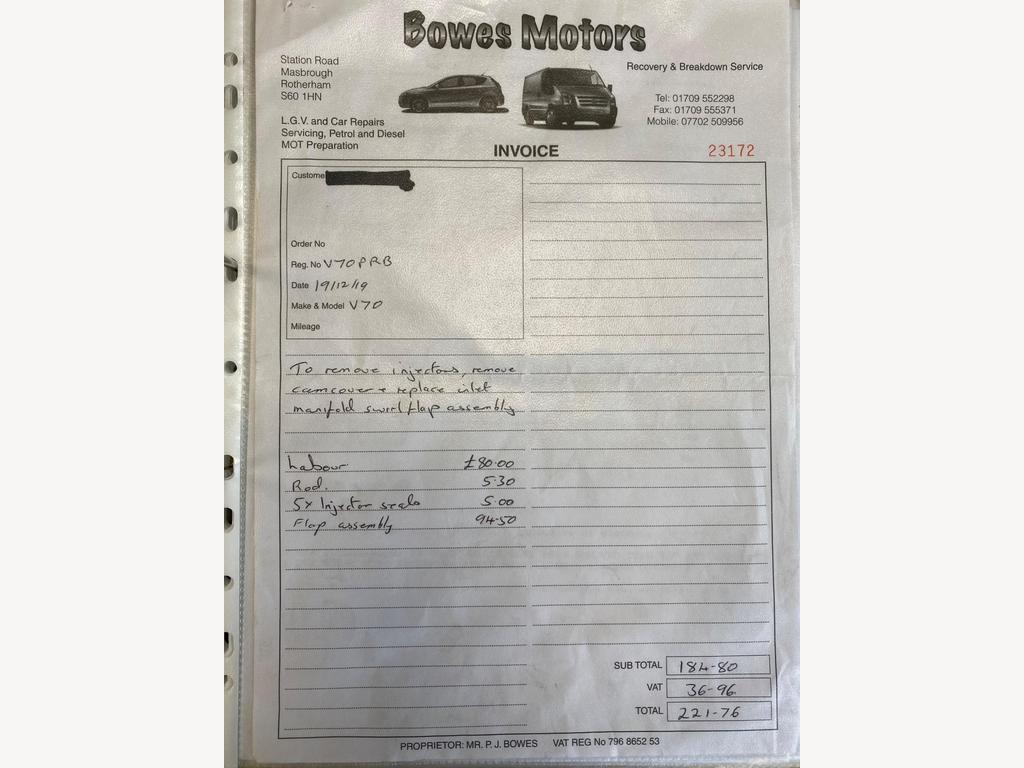 Bowes Motors
Station Road
Masbrough
Rotherham
S60 1HN
L.G.V. and Car Repairs
Servicing, Petrol and Diesel
MOT Preparation
Recovery & Breakdown Service
Tel: 01709 552298
Fax: 01709 555371
Mobile: 07702 509956
INVOICE 23172
Custome
Order No
Reg. No V70PRB
Date 19/12/19
Make & Model V70
Mileage
To remove injectors, remove
camcover + replace inlet
manifold swirl flap assembly
Labour £80.00
Rod. 5.30
5x Injector seals 5.00
Flap assembly 94.50
SUB TOTAL 184-80
VAT 36-96
TOTAL 221-76
PROPRIETOR: MR. P. J. BOWES VAT REG No 796 8652 53